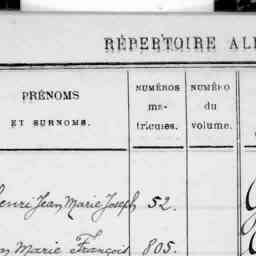 RÉPERTOIRE AL
PRÉNOMS
ET SURNOMS.
NUMÉROS
ma-
tricules.
NUMÉRO
du
volume.
Henri Jean Marie Joseph 52.
Marie François 805.